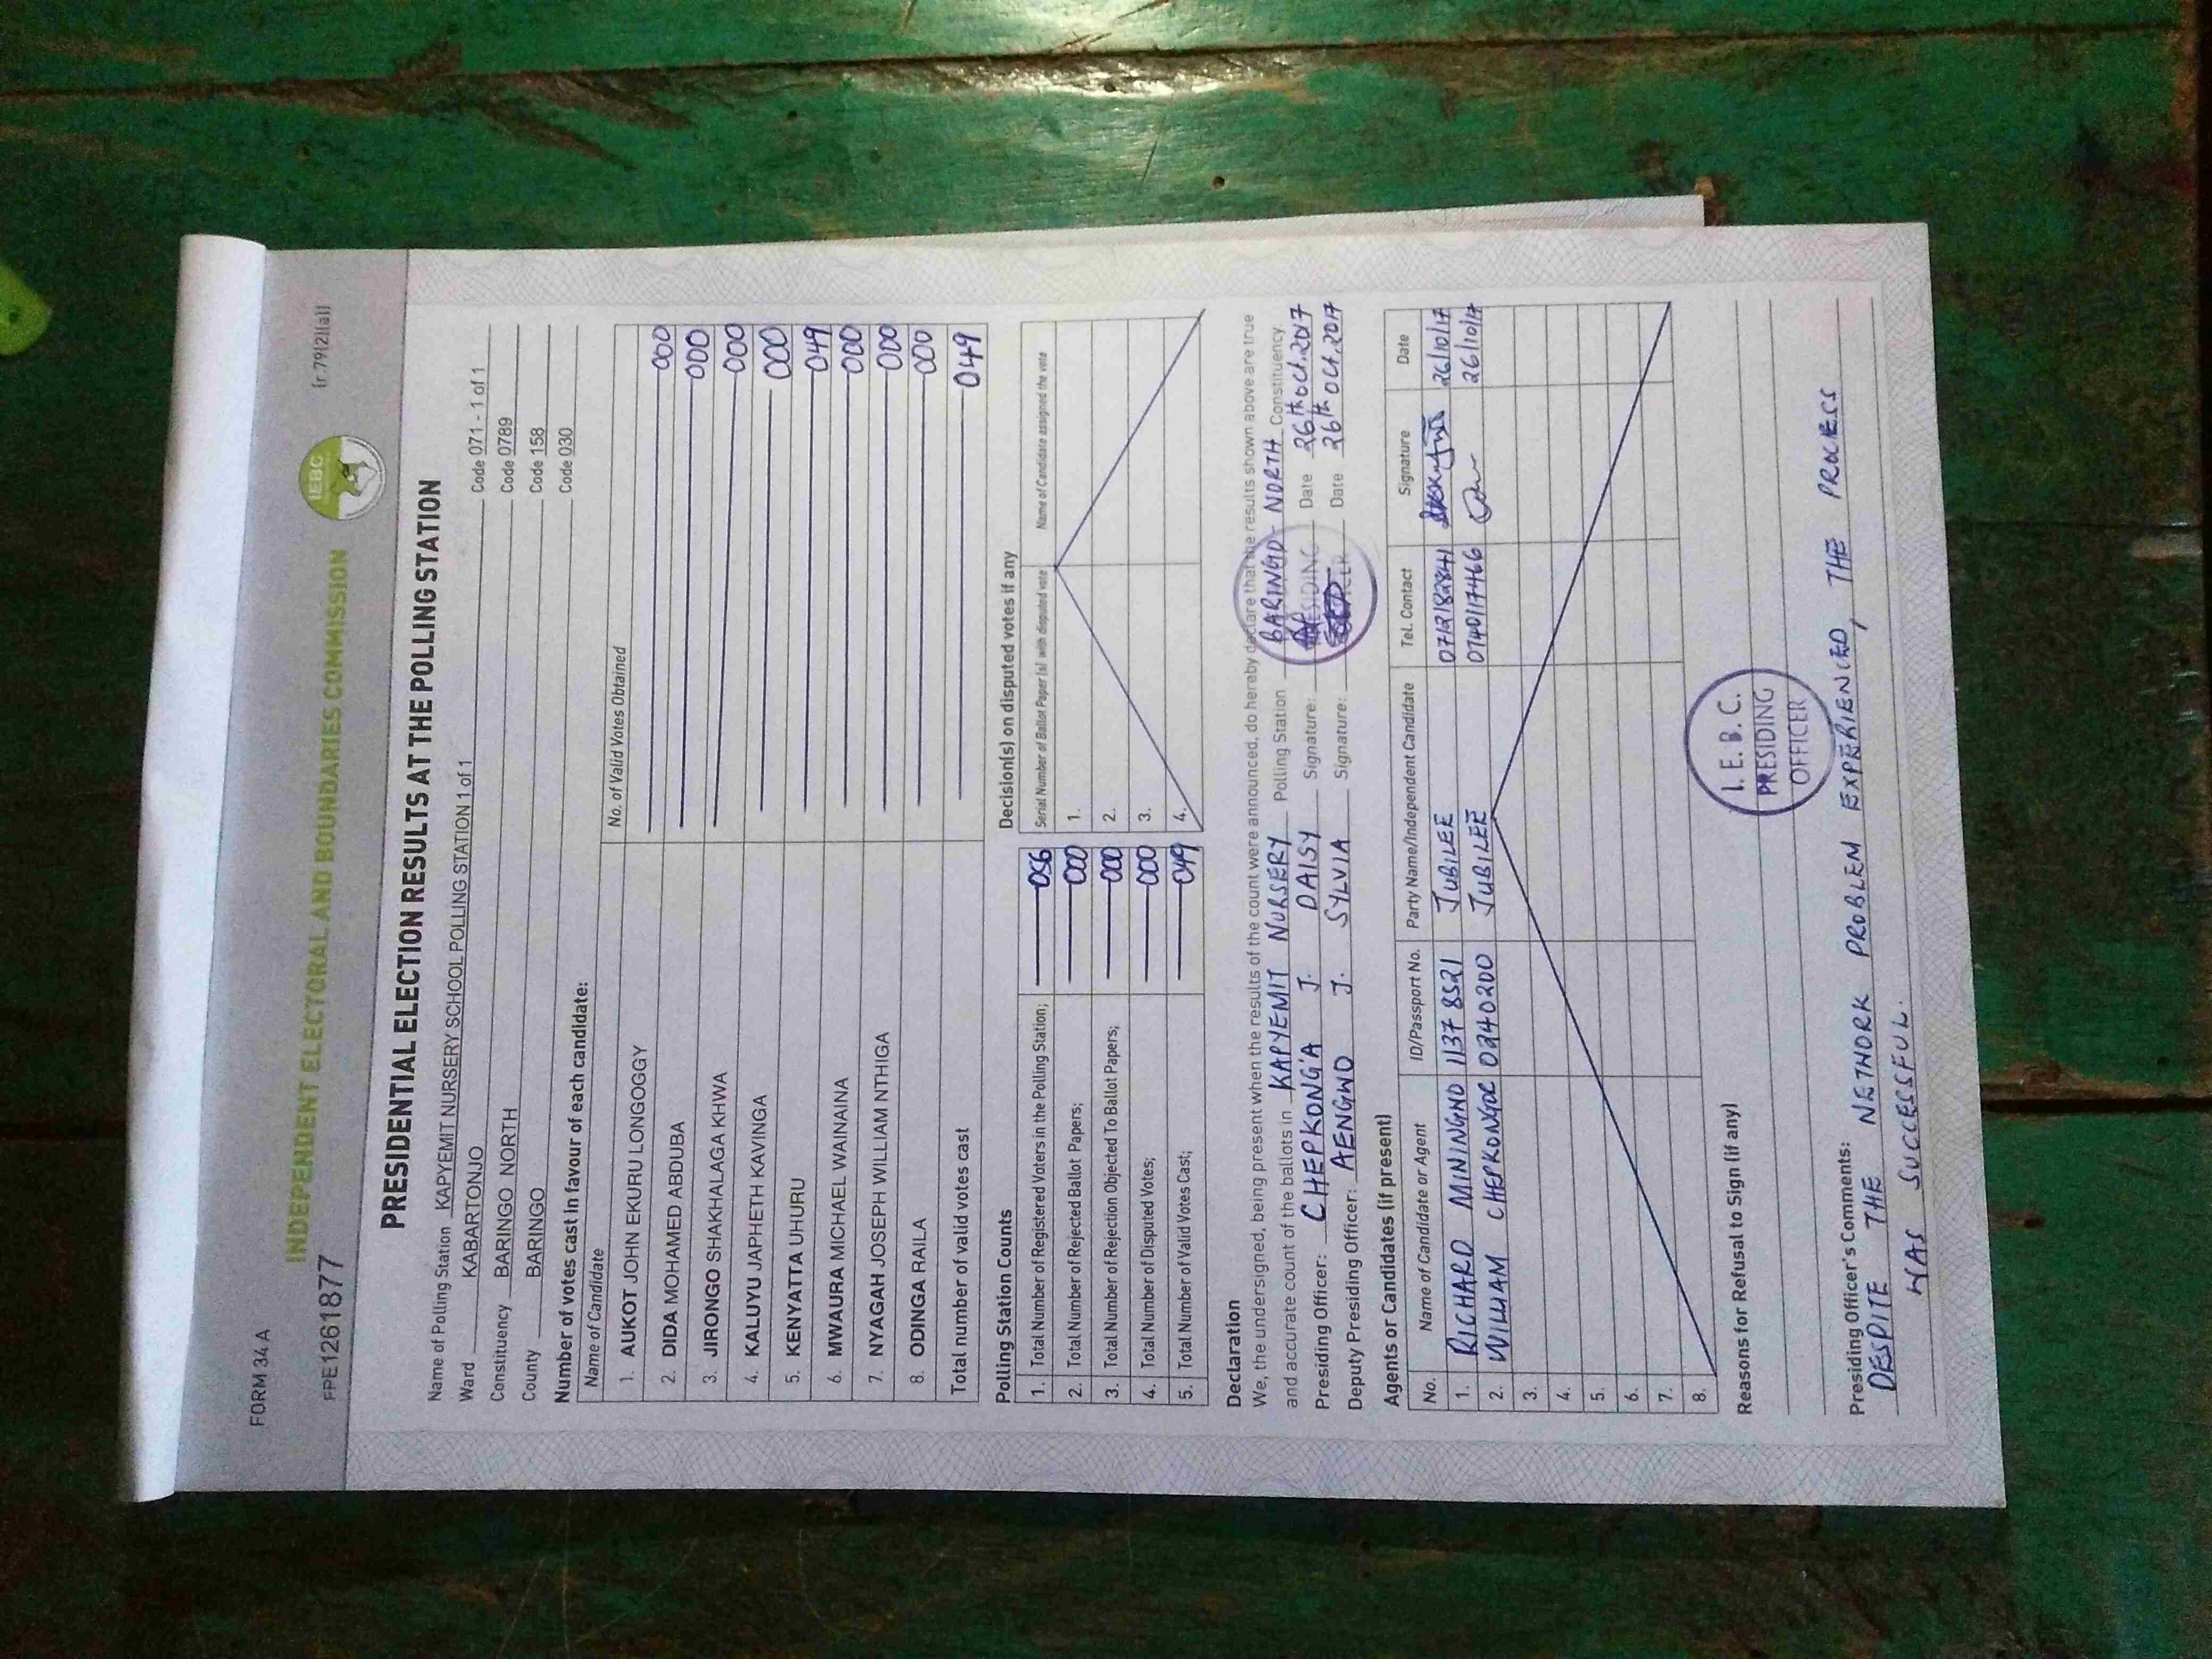 FORM 34 A
INDEPENDENT ELECTORAL AND BOUNDARIES COMMISSION
IEBC
(r.79(2)(a))
FPE1261877
PRESIDENTIAL ELECTION RESULTS AT THE POLLING STATION
Name of Polling Station KAPYEMIT NURSERY SCHOOL POLLING STATION 1 of 1 Code 071 - 1 of 1
Ward KABARTONJO Code 0789
Constituency BARINGO NORTH Code 158
County BARINGO Code 030
Number of votes cast in favour of each candidate:
Name of Candidate No. of Valid Votes Obtained
1. AUKOT JOHN EKURU LONGOGGY 000
2. DIDA MOHAMED ABDUBA 000
3. JIRONGO SHAKHALAGA KHWA 000
4. KALUYU JAPHETH KAVINGA 000
5. KENYATTA UHURU 049
6. MWAURA MICHAEL WAINAINA 000
7. NYAGAH JOSEPH WILLIAM NTHIGA 000
8. ODINGA RAILA 000
Total number of valid votes cast 049
Polling Station Counts
1. Total Number of Registered Voters in the Polling Station; 056
2. Total Number of Rejected Ballot Papers; 000
3. Total Number of Rejection Objected To Ballot Papers; 000
4. Total Number of Disputed Votes; 000
5. Total Number of Valid Votes Cast; 049
Decision(s) on disputed votes if any
Serial Number of Ballot Paper (s) with disputed vote Name of Candidate assigned the vote
1.
2.
3.
4.
Declaration
We, the undersigned, being present when the results of the count were announced, do hereby declare that the results shown above are true
and accurate count of the ballots in KAPYEMIT NURSERY Polling Station BARINGO - NORTH Constituency
Presiding Officer: CHEPKONG'A J. DAISY Signature: Date 26th Oct. 2017
Deputy Presiding Officer: AENGWO J. SYLVIA Signature: Date 26th Oct. 2017
Agents or Candidates (if present)
No. Name of Candidate or Agent ID/Passport No. Party Name/Independent Candidate Tel. Contact Signature Date
1. RICHARD MININGWO 11378521 JUBILEE 0712182841 26/10/17
2. WILLIAM CHEPKONGOR 0240200 JUBILEE 0740117466 26/10/17
3.
4.
5.
6.
7.
8.
Reasons for Refusal to Sign (if any)
I. E. B. C.
PRESIDING
OFFICER
Presiding Officer's Comments:
DESPITE THE NETWORK PROBLEM EXPERIENCED, THE PROCESS
WAS SUCCESSFUL.